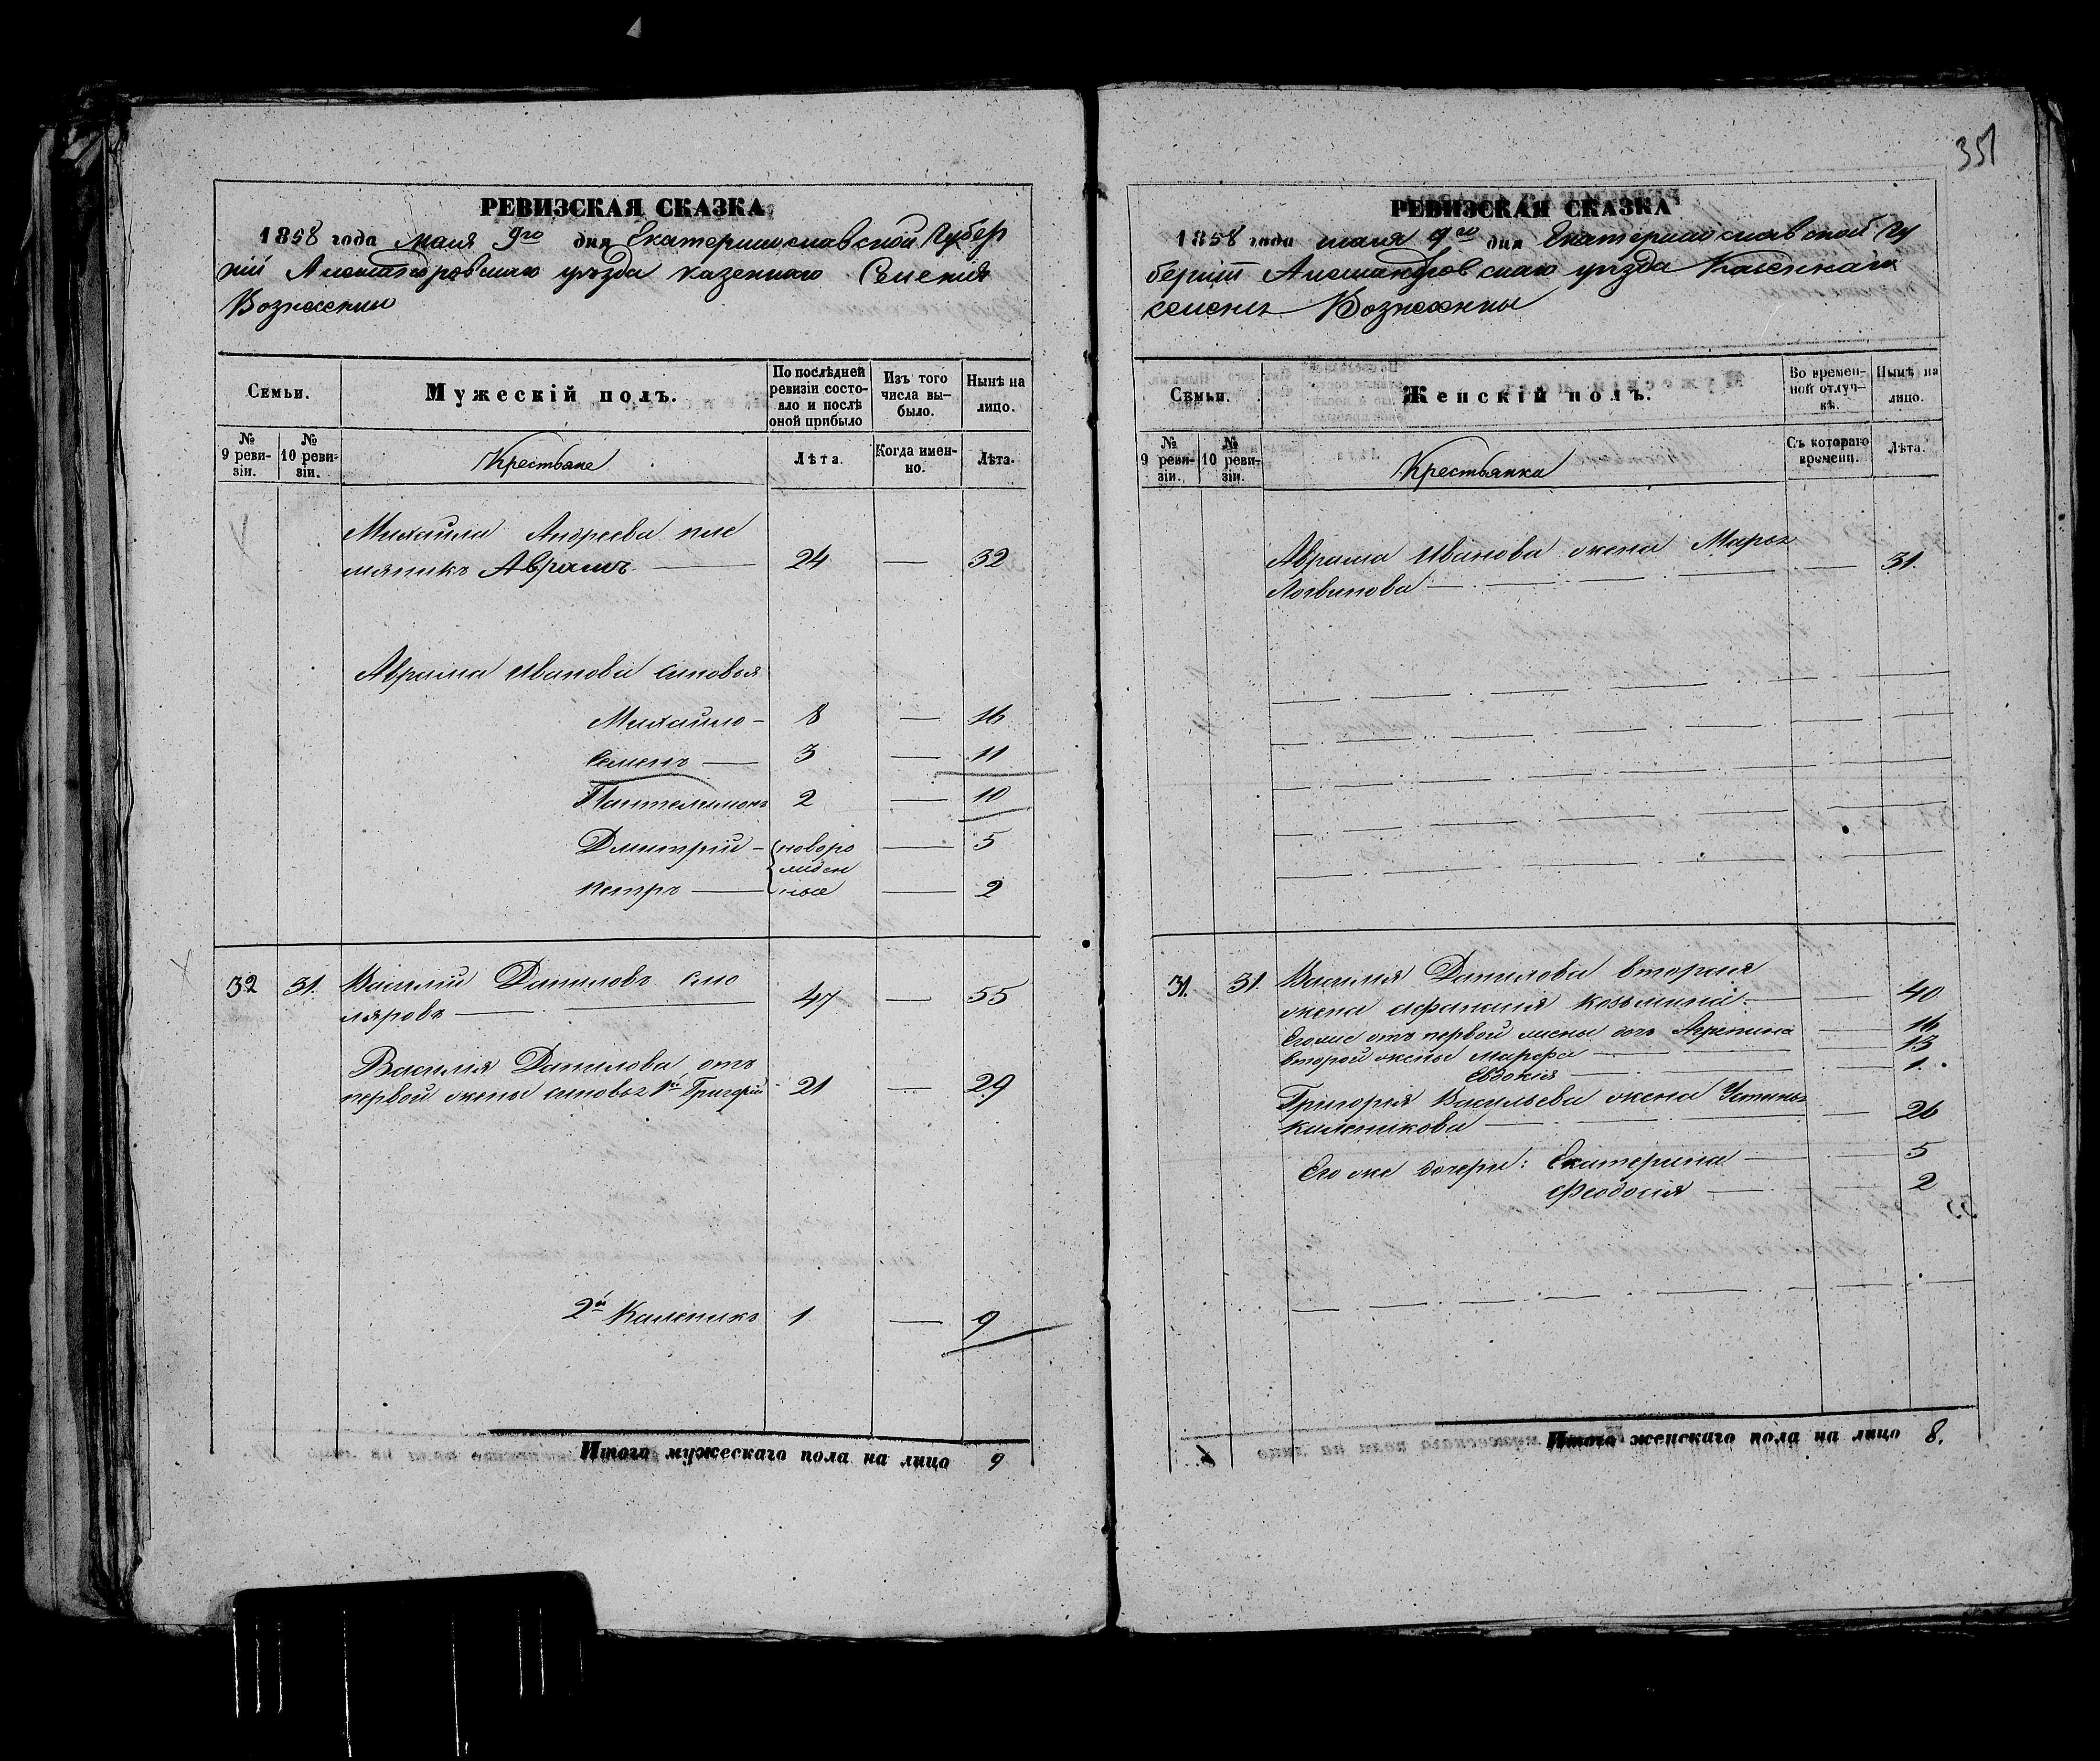 351
РЕВИЗСКАЯ СКАЗКА
1858 года мая 9го дня Екатеринославской Губер
ніи Александровскаго уѣзда казеннаго Селенія
Вознесенки
Семьи.
Мужескій полъ.
По послѣдней ревизіи состояло и послѣ оной прибыло
Изъ того числа выбыло.
Нынѣ на лицо.
№ 9 ревизіи.
№ 10 ревизіи.
Крестьяне
Лѣта.
Когда именно.
Лѣта.
Михайла Андреева пле
мяникъ Аврамъ — 24 — 32
Аврама Иванова сыновья
Михайло — 8 — 16
Семенъ — 3 — 11
Пантелимонъ 2 — 10
Дмитрій — новоро — 5
жден
Петръ — ные — 2
32 31. Василій Даниловъ сто
ляровъ — 47 — 55
Василія Данилова отъ
первой жены сыновья 1й Григорій 21 — 29
2й Каленикъ 1 — 9
Итого мужескаго пола на лицо 9
РЕВИЗСКАЯ СКАЗКА
1858 года мая 9го дня Екатеринославской Гу
берніи Александровскаго уѣзда Казеннаго
селенія Вознесенки
Семьи.
Женскій полъ.
Во временной отлучкѣ.
Нынѣ на лицо.
№ 9 ревизіи.
№ 10 ревизіи.
Крестьянка
Съ котораго времени.
Лѣта.
Аврама Иванова жена Марья
Логвинова — — 31.
31. 31. Василія Данилова вторая
жена Афанасія Козьмина — — 40
Егоже отъ первой жены дочь Агрепина — 16
второй жены Марфа — — 13
Евдокія — — 1.
Григорія Васильева жена Устинья
Каленикова — — 26
Его же дочери: Екатерина — — 5
Феодосія — — 2
Итого женскаго пола на лицо 8.